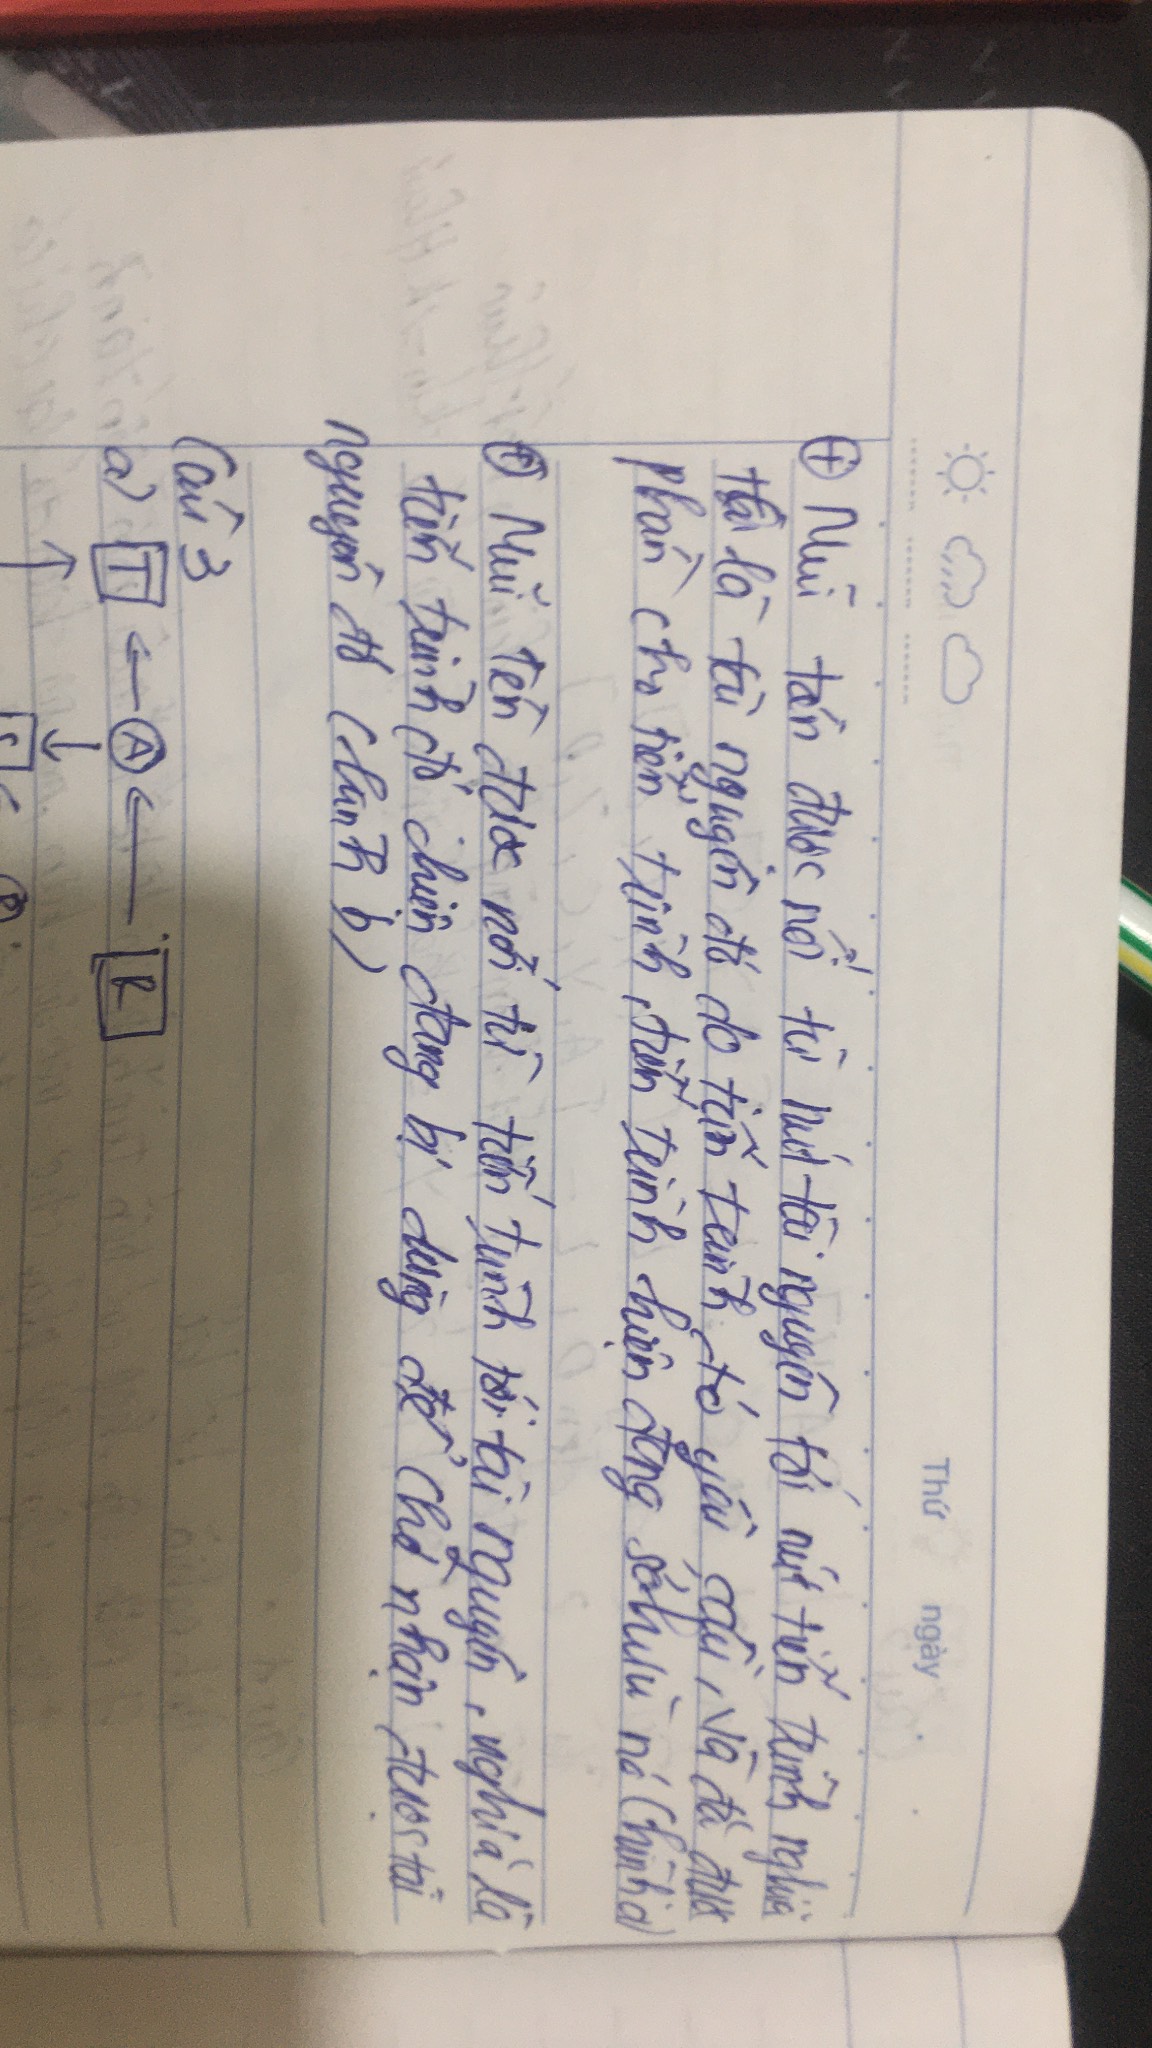 Thứ ngày
⊕ Mũi tên được nối từ nút tài nguyên tới nút tiến trình nghĩa
là tài nguyên đó do tiến trình đó yêu cầu, và đã được
phân cho tiến trình, tiến trình hiện đang sở hữu nó (hình a)
⊕ Mũi tên được nối từ tiến trình tới tài nguyên, nghĩa là
tiến trình đó hiện đang bị dừng để chờ nhận được tài
nguyên đó (hình b)
Câu 3
a) T ← A ← R
S ← B